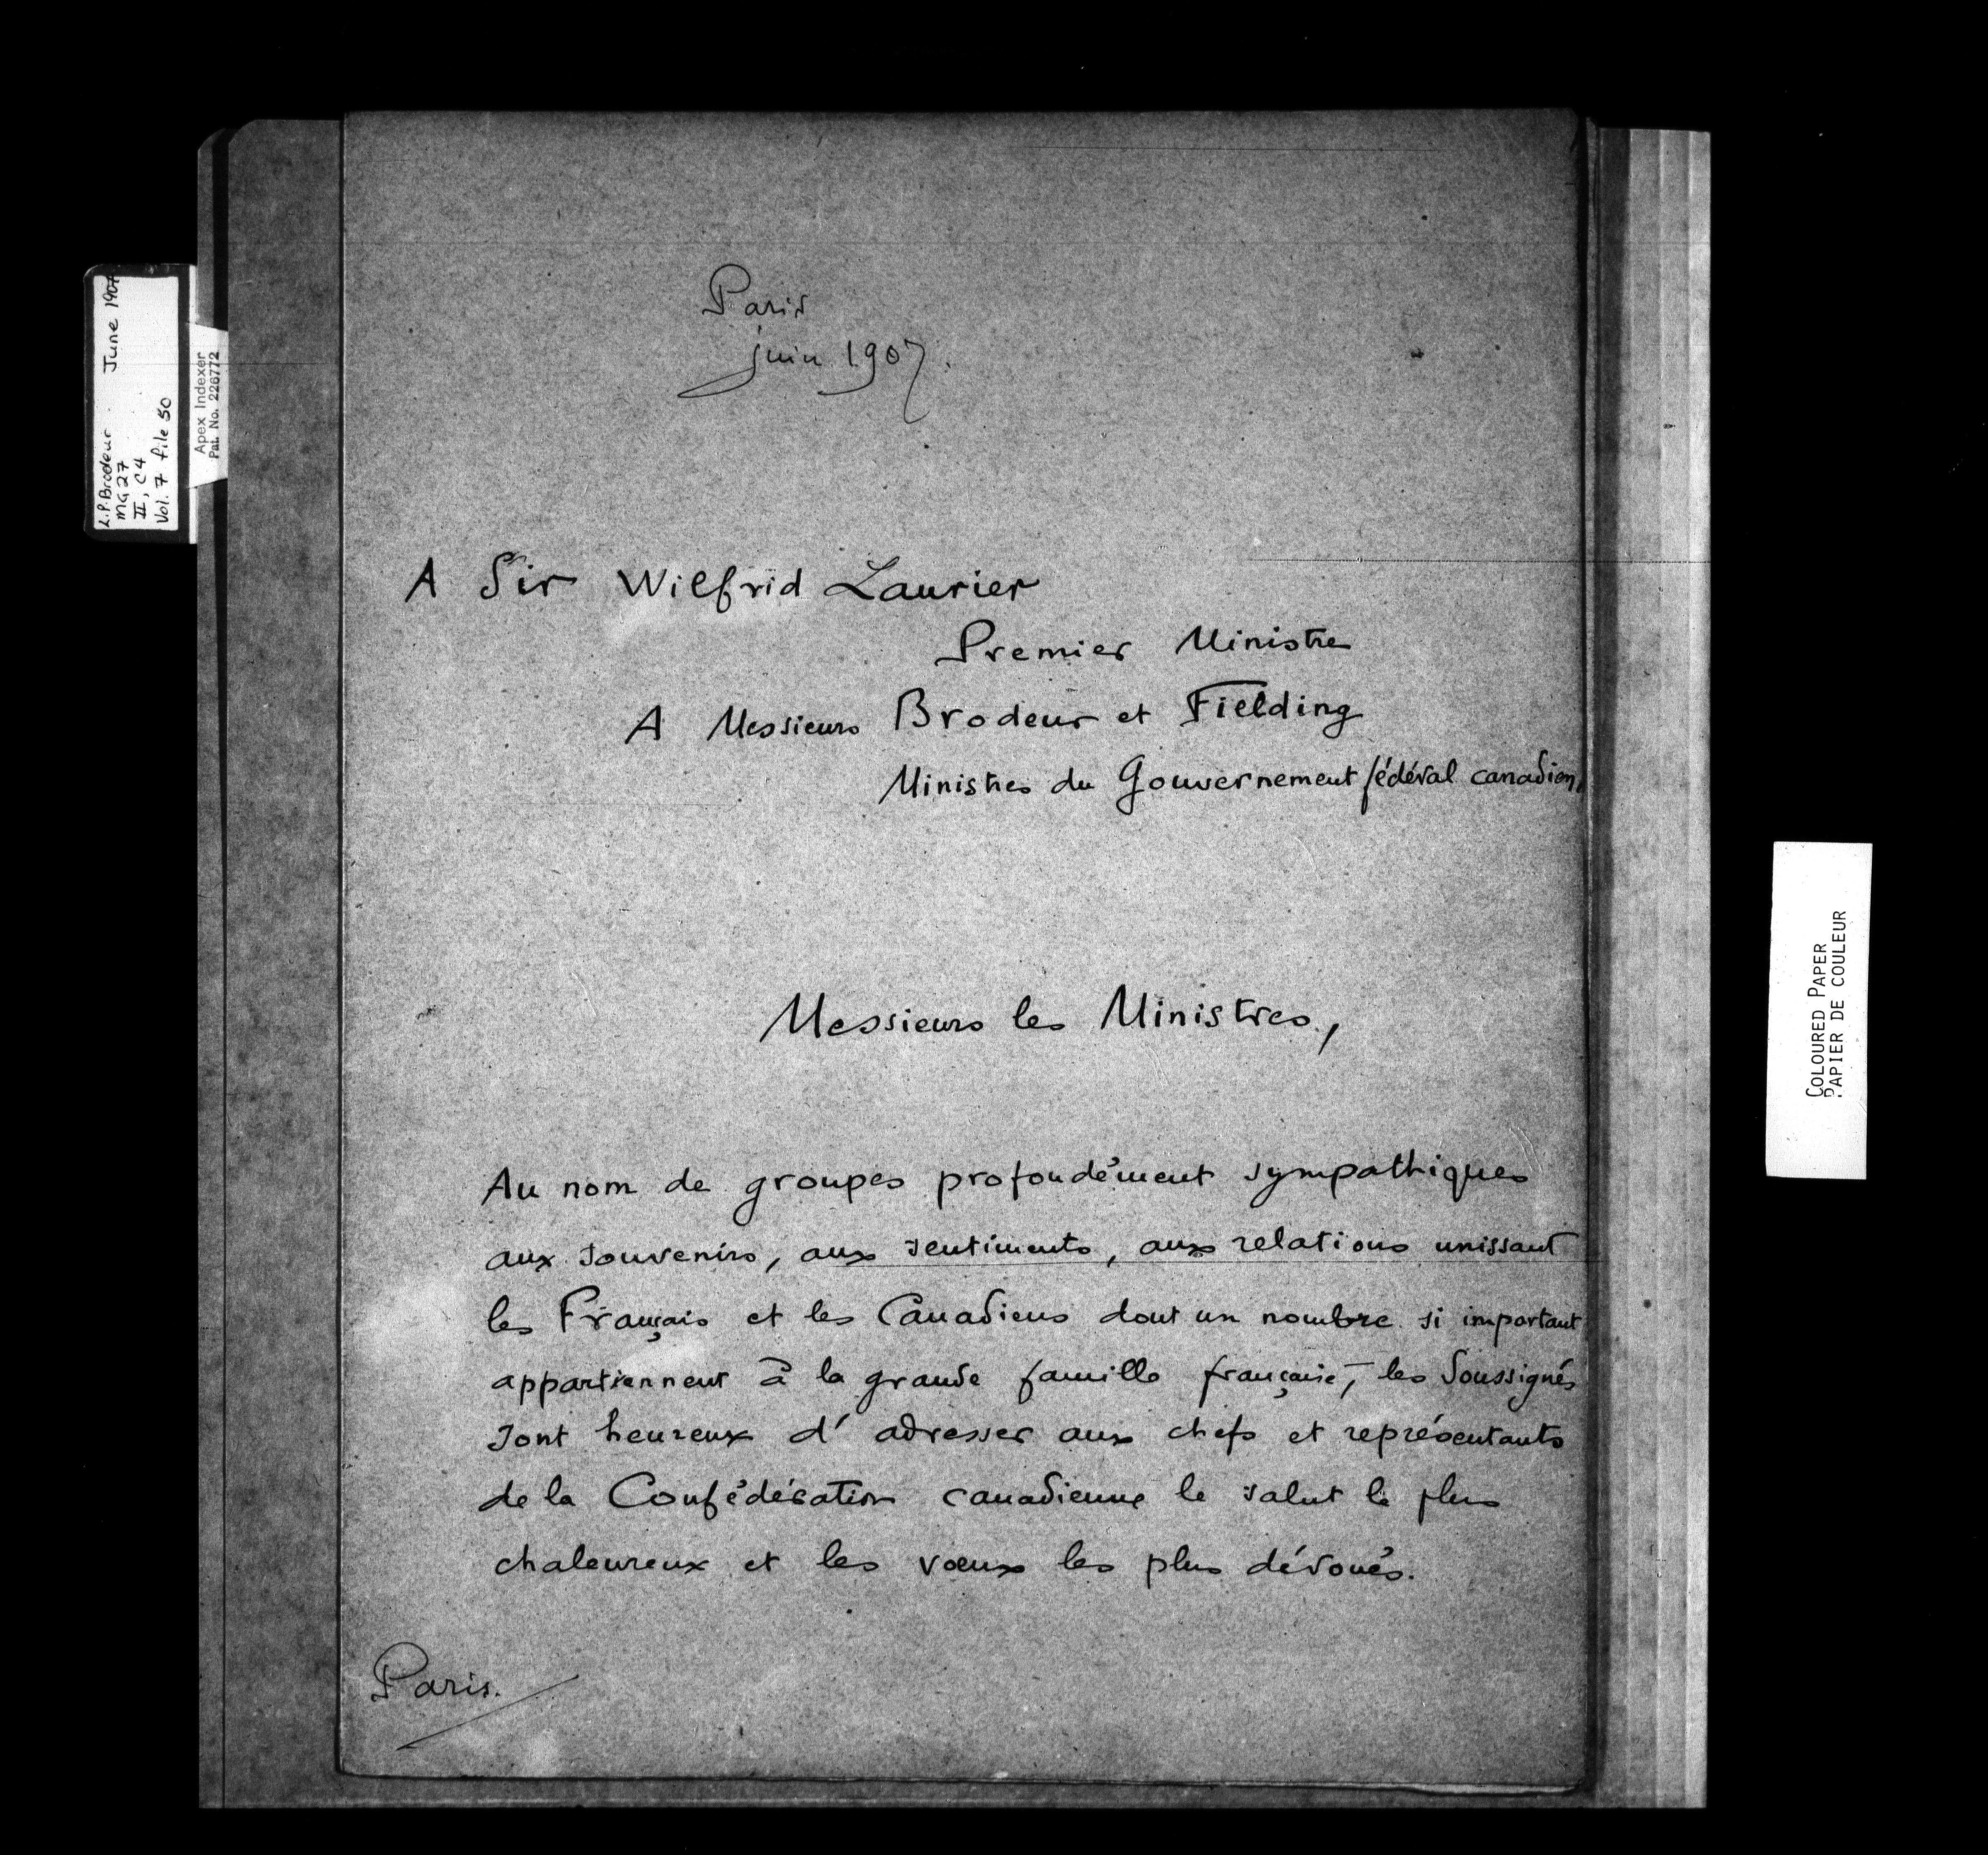 L.P. Brodeur June 1907
MG27
II, C4
Vol. 7 file 50
Apex Indexer
Pat. No. 226772
Paris
juin 1907.
A Sir Wilfrid Laurier
Premier Ministre
A Messieurs Brodeur et Fielding
Ministres du Gouvernement fédéral canadien,
Messieurs les Ministres,
Au nom de groupes profondément sympathiques
aux souvenirs, aux sentiments, aux relations unissant
les Français et les Canadiens dont un nombre si important
appartiennent à la grande famille française, les Soussignés
sont heureux d'adresser aux chefs et représentants
de la Confédération canadienne le salut le plus
chaleureux et les vœux les plus dévoués.
Paris.
COLOURED PAPER
PAPIER DE COULEUR